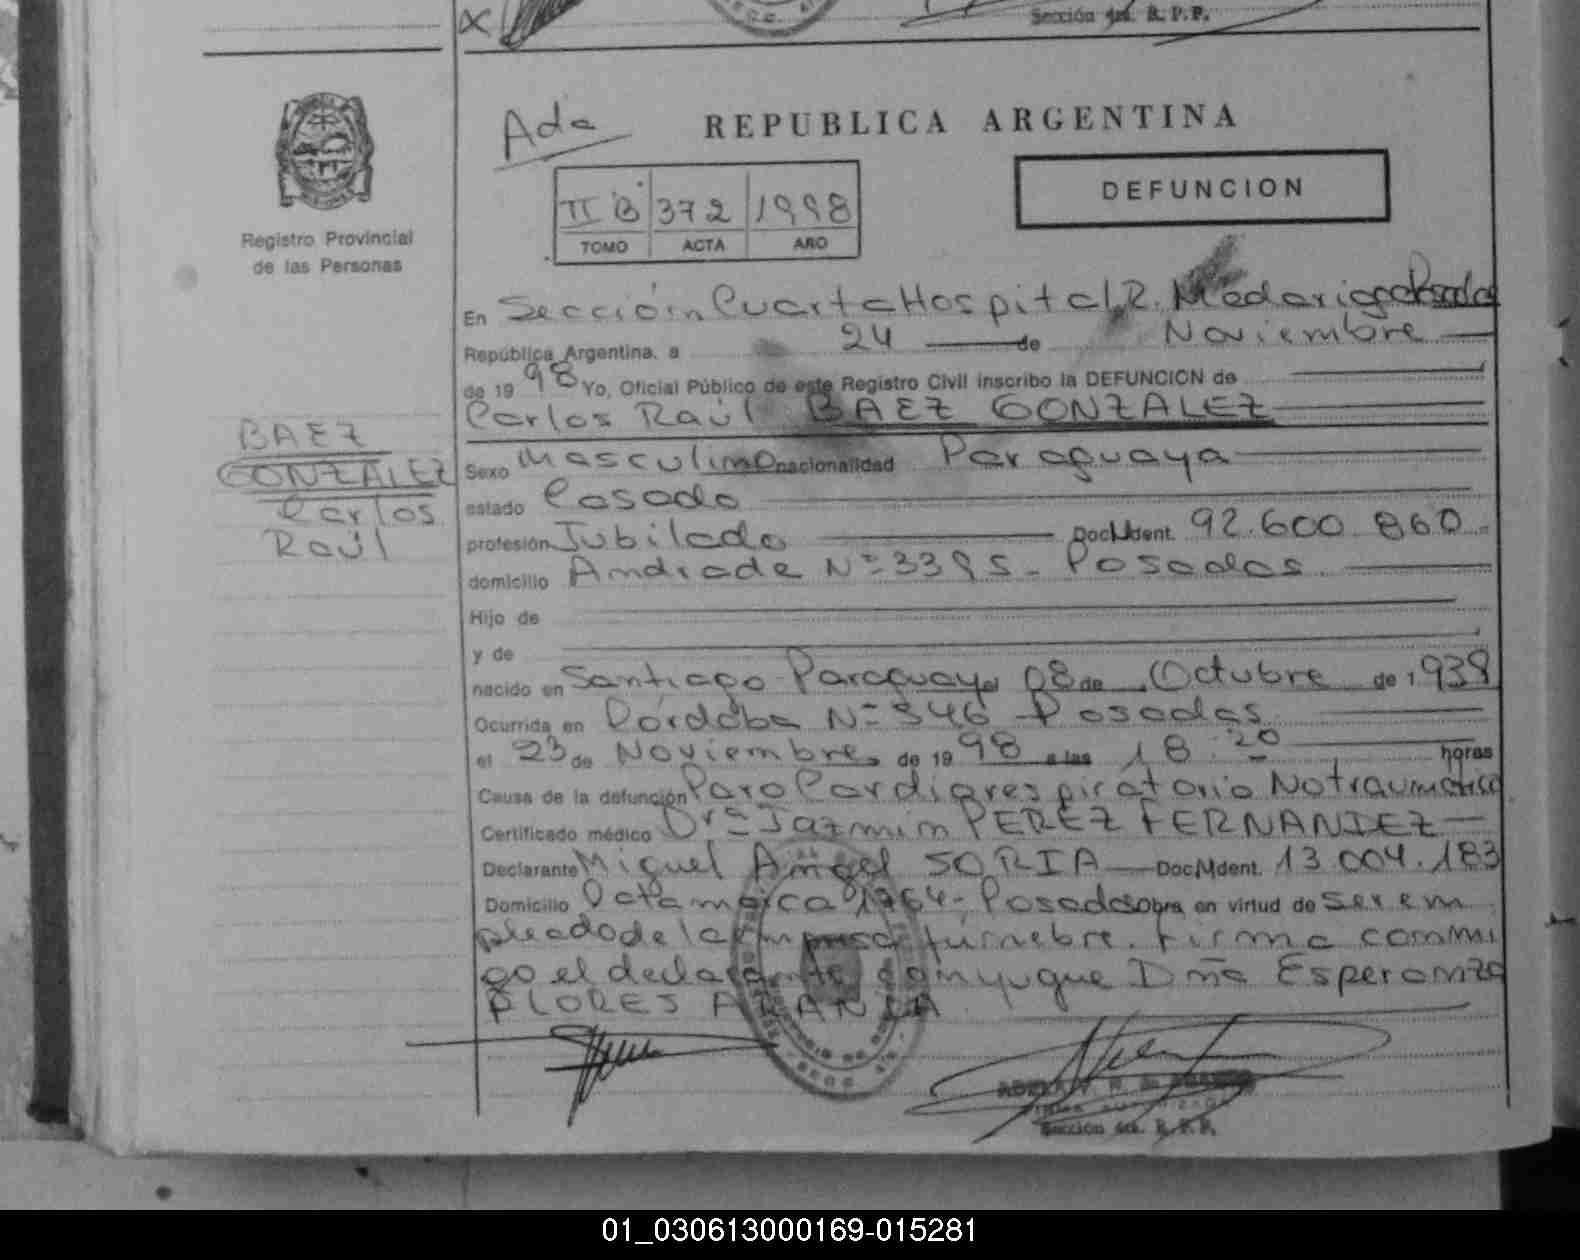 Sección 4ta. R. P. P.
Ada
REPUBLICA ARGENTINA
II B 372 1998
TOMO ACTA AÑO
DEFUNCION
Registro Provincial
de las Personas
En Sección Cuarta Hospital R. Madariaga Posadas
República Argentina, a 24 de Noviembre
de 19 98 Yo, Oficial Público de este Registro Civil inscribo la DEFUNCION de
Carlos Raúl BAEZ GONZALEZ
BAEZ
GONZALEZ
Carlos
Raúl
Sexo Masculino nacionalidad Paraguaya
estado Casado
profesión Jubilado Doc. Ident. 92.600.860
domicilio Andrade Nº 3395 - Posadas
Hijo de
y de
nacido en Santiago Paraguay el 08 de Octubre de 1.939
Ocurrida en Córdoba Nº 346 Posadas
el 23 de Noviembre de 19 98 a las 18:20 horas
Causa de la defunción Paro Cardiorespiratorio No traumático
Certificado médico Drª Jazmin PEREZ FERNANDEZ
Declarante Miguel Angel SORIA Doc. Ident. 13.004.183
Domicilio Catamarca 1764 - Posadas obra en virtud de ser em
pleado de la empresa fúnebre. Firma conmi
go el declarante conyugue Dña Esperanza
FLORES ARANDA
Sección 4ta. R. P. P.
01_030613000169-015281